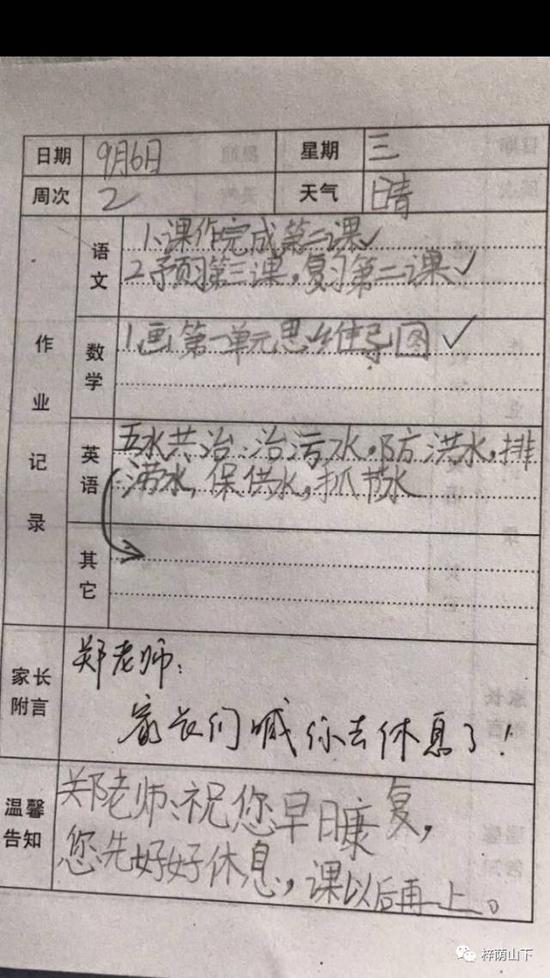 日期 9月6日 星期 三
周次 2 天气 晴
作业记录
语文
1.课作完成第二课✓
2.预习第三课,复习第二课✓
数学
1.画第一单元思维导图✓
英语
五水共治:治污水,防洪水,排
涝水,保供水,抓节水
其它
家长附言
郑老师:
家长们喊你去休息了!
温馨告知
郑老师:祝您早日康复,
您先好好休息,课以后再上。
梓荫山下